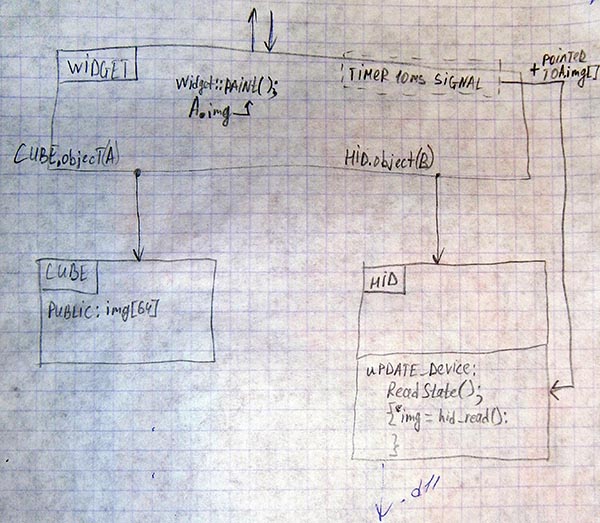 WIDGET
Widget::PAINT();
A.img
TIMER 10ms SIGNAL
+ POINTED
TO A.img[]
CUBE.object(A)
HID.object(B)
CUBE
PUBLIC: img[64]
HID
UPDATE_Device:
ReadState();
{*img = hid_read();
}
.dll